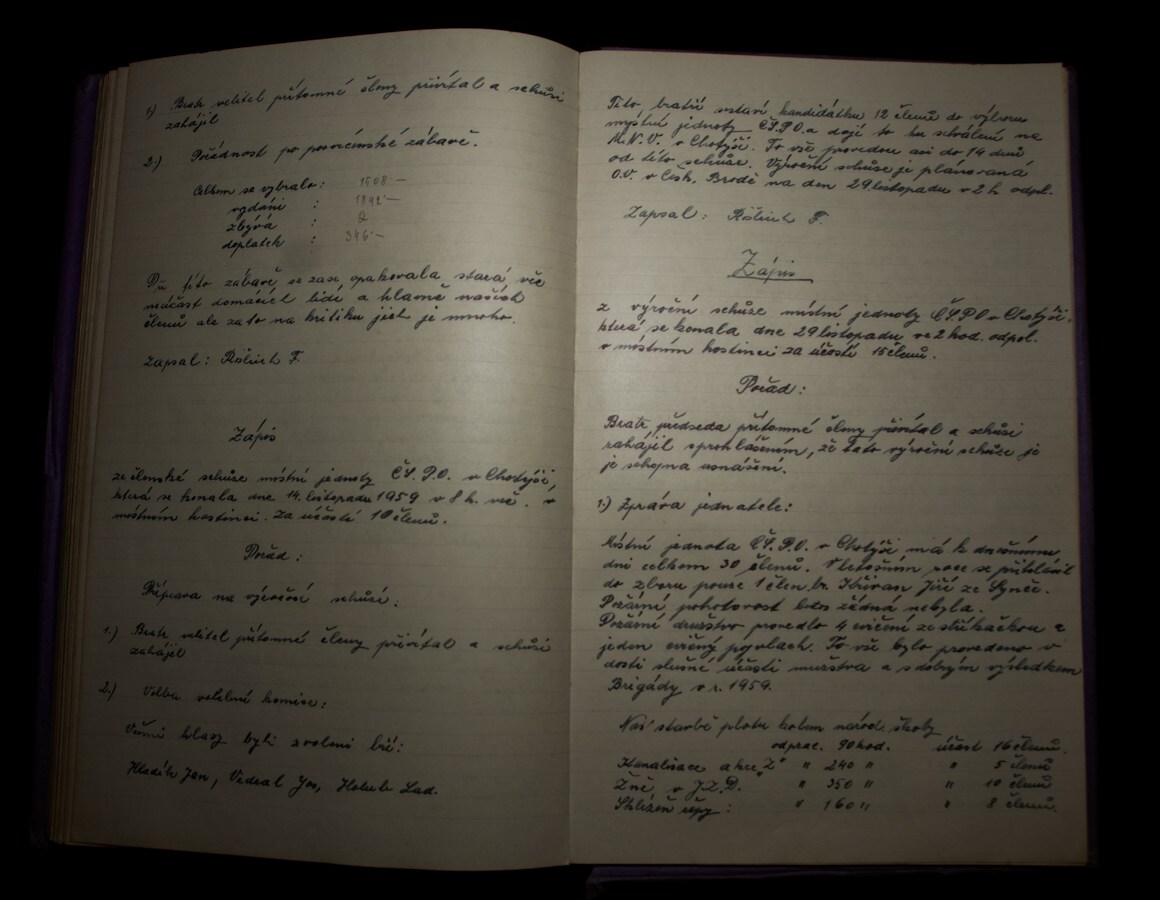 1) Bratr velitel přítomné členy přivítal a schůzi
zahájil
2.) Pořádnost po posvícenské zábavě.
Celkem se vybralo: 1508 —
vydání : 1842 —
zbývá : 0
doplatek : 346 —
Při této zábavě se zase opakovala stará věc
neúčast domácích lidí a hlavně našich
členů ale za to na kritiku jich je mnoho.
Zapsal: F.
Zápis
ze členské schůze místní jednoty ČS.P.O. v Chotýši,
která se konala dne 14. listopadu 1959 v 8 h. več. v
místním hostinci. Za účasti 10 členů.
Pořad:
Příprava na výroční schůzi.
1.) Bratr velitel přítomné členy přivítal a schůzi
zahájil
2.) Volba volební komise:
Všemi hlasy byli zvoleni bři:
Hladík Jan, Vedral Jos, Holub Lad.
Tito bratří sestaví kandidátku 12 členů do výboru
místní jednoty ČS.P.O. a dají to ku schválení na
M.N.V. v Chotýši. To vše provedou asi do 14 dnů
od této schůze. Výroční schůze je plánovaná
O.V. v Česk. Brodě na den 29. listopadu v 2 h odpol.
Zapsal: F.
Zápis
z výroční schůze místní jednoty ČSPO v Chotýši,
která se konala dne 29 listopadu ve 2 hod. odpol.
v místním hostinci za účasti 15 členů.
Pořad:
Bratr předseda přítomné členy přivítal a schůzi
zahájil s prohlášením, že tato výroční schůze je
je schopna usnášení.
1.) Zpráva jednatele:
Místní jednota ČS.P.O. v Chotýši má k dnešnímu
dni celkem 30 členů. V letošním roce se přihlásil
do zboru pouze 1 člen br. Jiří ze Synče.
Požární pohotovost letos žádná nebyla.
Požární družstvo provedlo 4 cvičení ze stříkačkou a
jeden cvičný poplach. To vše bylo provedeno v
dosti slušné účasti mužstva a s dobrým výsledkem
Brigády v r. 1959.
Na stavbě plotu kolem národ. školy
odprac. 90 hod. účast 16 členů.
Kanalisace akce „Z" " 240 " " 5 členů
Žně v J.Z.D. " 350 " " 10 členů
Sklizeň řepy: " 160 " " 8 členů.